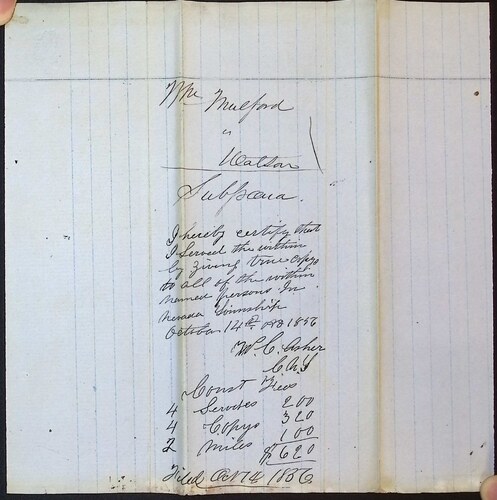 Wm Mulford
vs
Watson
Subpoena.
I hereby certify that
I Served the within
by giving true copys
to all of the within
named persons In
Nevada Township
October 14th AD 1856
W. C. Asher
Const Fees
4 Services 200
4 Copys 320
2 miles 100
$620
Filed Oct 14 1856